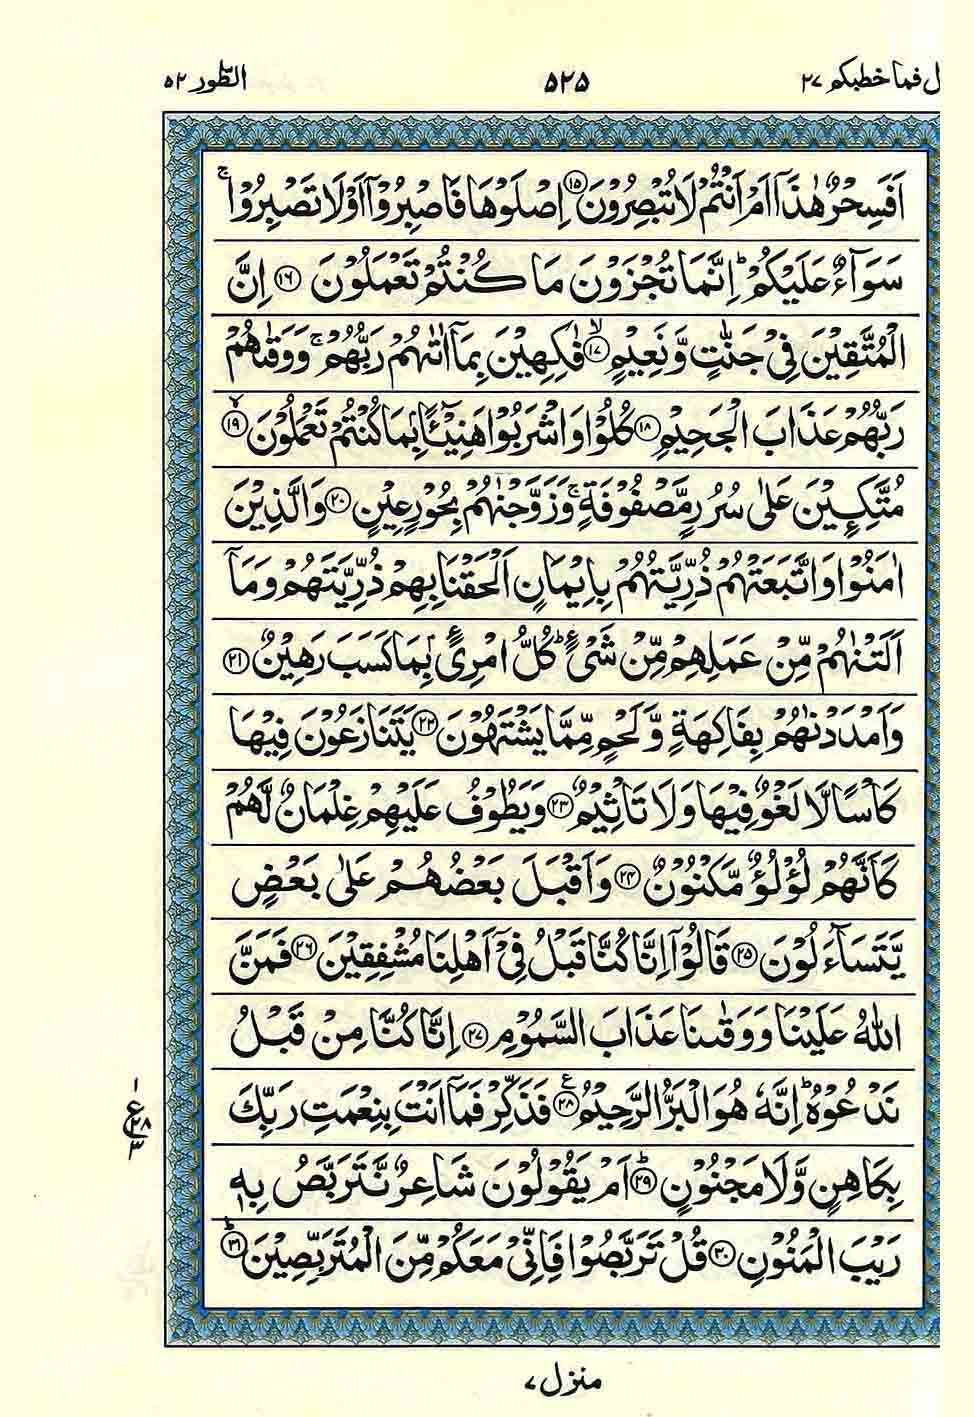 ل فما خطبكم ٢٧
٥٢٥
الطور ٥٢
اَفَسِحْرٌ هٰذَاۤ اَمْ اَنْتُمْ لَا تُبْصِرُوْنَ ۝١٥ اِصْلَوْهَا فَاصْبِرُوْۤا اَوْلَا تَصْبِرُوْا ۚ
سَوَآءٌ عَلَيْكُمْ ؕ اِنَّمَا تُجْزَوْنَ مَا كُنْتُمْ تَعْمَلُوْنَ ۝١٦ اِنَّ
الْمُتَّقِيْنَ فِيْ جَنّٰتٍ وَّنَعِيْمٍ ۙ۝١٧ فٰكِهِيْنَ بِمَاۤ اٰتٰىهُمْ رَبُّهُمْ ۚ وَوَقٰىهُمْ
رَبُّهُمْ عَذَابَ الْجَحِيْمِ ۝١٨ كُلُوْا وَاشْرَبُوْا هَنِيْٓـًٔۢا بِمَا كُنْتُمْ تَعْمَلُوْنَ ۙ۝١٩
مُتَّكِـِٕيْنَ عَلٰى سُرُرٍ مَّصْفُوْفَةٍ ۚ وَزَوَّجْنٰهُمْ بِحُوْرٍ عِيْنٍ ۝٢٠ وَالَّذِيْنَ
اٰمَنُوْا وَاتَّبَعَتْهُمْ ذُرِّيَّتُهُمْ بِاِيْمَانٍ اَلْحَقْنَا بِهِمْ ذُرِّيَّتَهُمْ وَمَاۤ
اَلَتْنٰهُمْ مِّنْ عَمَلِهِمْ مِّنْ شَيْءٍ ؕ كُلُّ امْرِئٍۢ بِمَا كَسَبَ رَهِيْنٌ ۝٢١
وَاَمْدَدْنٰهُمْ بِفَاكِهَةٍ وَّلَحْمٍ مِّمَّا يَشْتَهُوْنَ ۝٢٢ يَتَنَازَعُوْنَ فِيْهَا
كَاْسًا لَّا لَغْوٌ فِيْهَا وَلَا تَاْثِيْمٌ ۝٢٣ وَيَطُوْفُ عَلَيْهِمْ غِلْمَانٌ لَّهُمْ
كَاَنَّهُمْ لُؤْلُؤٌ مَّكْنُوْنٌ ۝٢٤ وَاَقْبَلَ بَعْضُهُمْ عَلٰى بَعْضٍ
يَّتَسَآءَلُوْنَ ۝٢٥ قَالُوْۤا اِنَّا كُنَّا قَبْلُ فِيْۤ اَهْلِنَا مُشْفِقِيْنَ ۝٢٦ فَمَنَّ
اللّٰهُ عَلَيْنَا وَوَقٰىنَا عَذَابَ السَّمُوْمِ ۝٢٧ اِنَّا كُنَّا مِنْ قَبْلُ
نَدْعُوْهُ ؕ اِنَّهٗ هُوَ الْبَرُّ الرَّحِيْمُ ۝٢٨ع فَذَكِّرْ فَمَاۤ اَنْتَ بِنِعْمَتِ رَبِّكَ
١ ع ٢٨ ٣
بِكَاهِنٍ وَّلَا مَجْنُوْنٍ ؕ۝٢٩ اَمْ يَقُوْلُوْنَ شَاعِرٌ نَّتَرَبَّصُ بِهٖ
رَيْبَ الْمَنُوْنِ ۝٣٠ قُلْ تَرَبَّصُوْا فَاِنِّيْ مَعَكُمْ مِّنَ الْمُتَرَبِّصِيْنَ ؕ۝٣١
منزل ٧